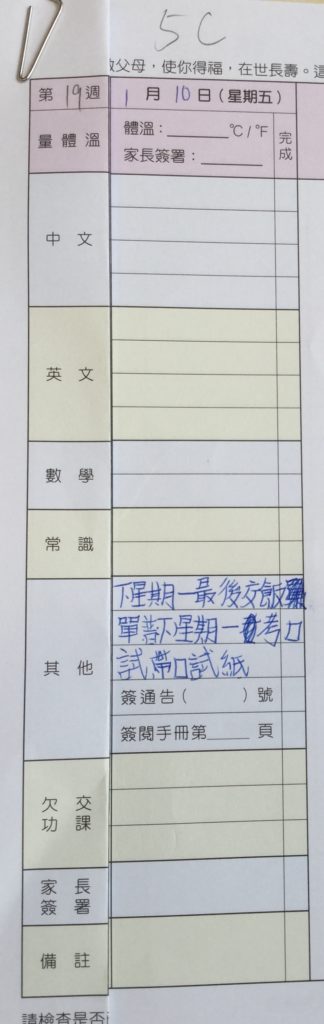 5C
父母，使你得福，在世長壽。這
第 19 週 1 月 10 日（星期五）
量體溫 體溫：______°C / °F 完成
家長簽署：______
中文
英文
數學
常識
其他
下星期一最後交飯
單 下星期一考口
試 帶口試紙
簽通告（ ）號
簽閱手冊第____頁
欠交功課
家長簽署
備註
請檢查是否